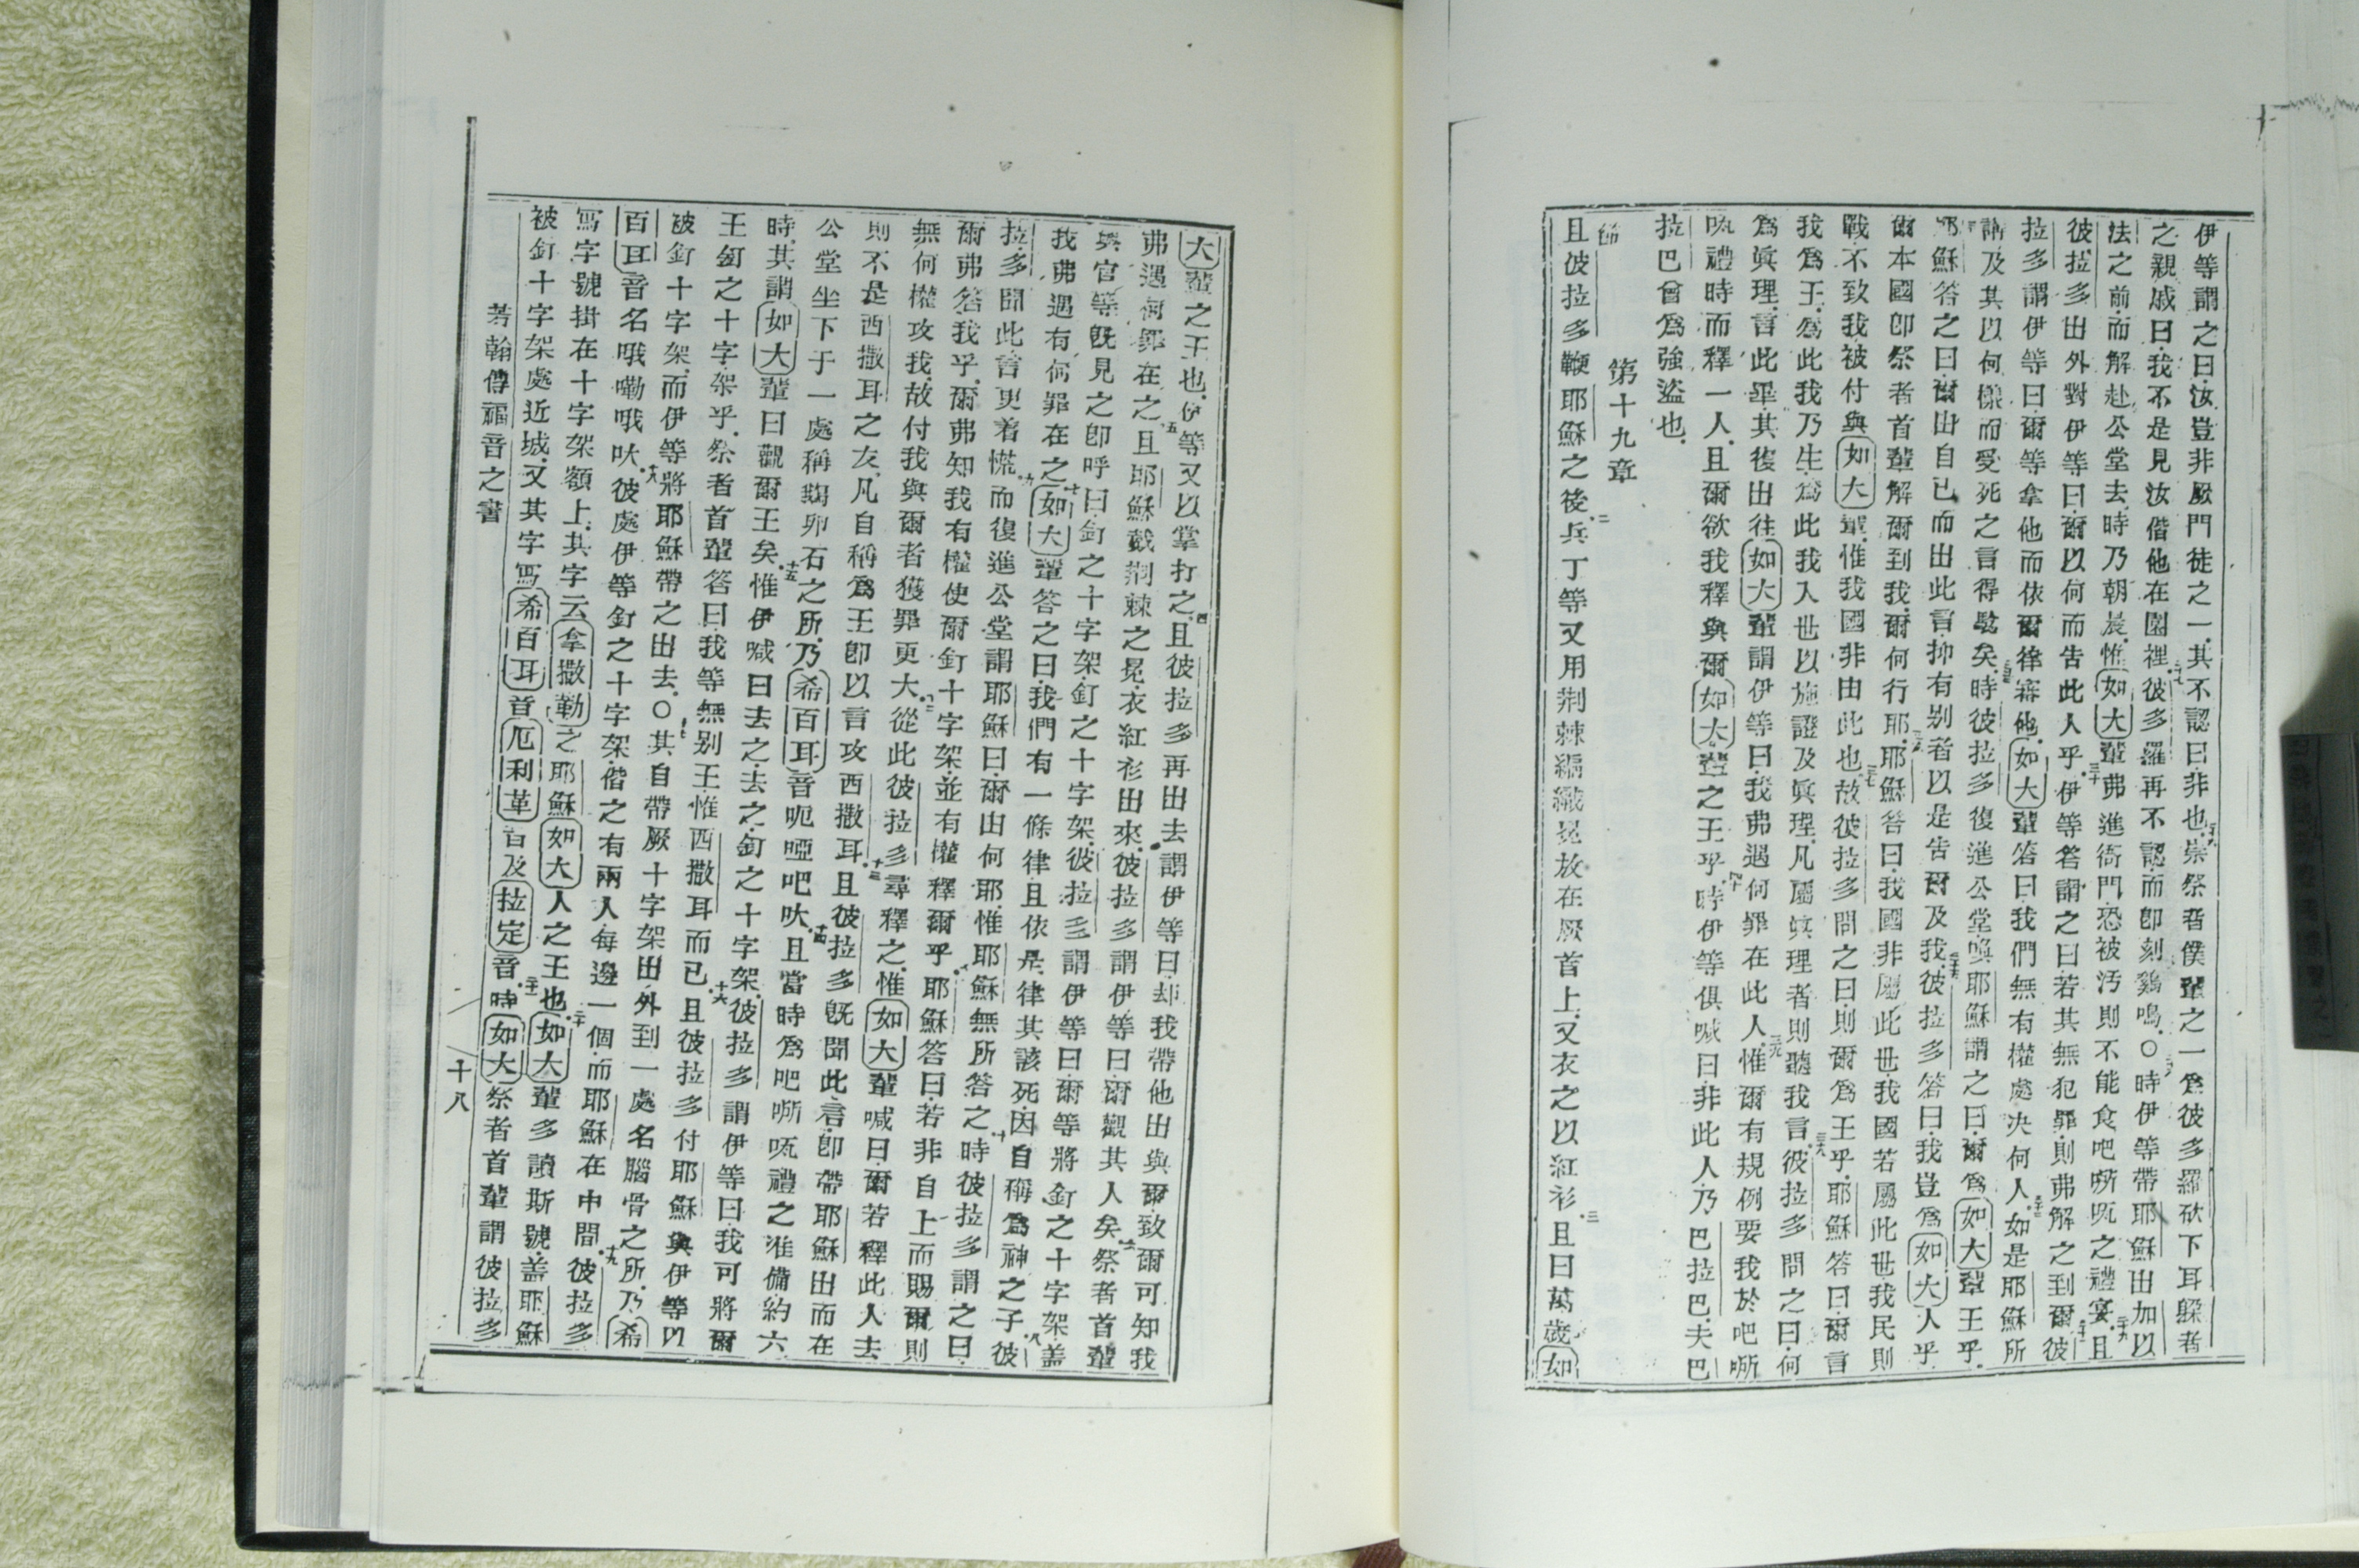 伊等謂之曰汝豈非厥門徒之一其不認曰非也崇祭者僕輩之一爲彼多羅砍下耳躲者
之親戚曰我不是見汝偕他在園裡彼多羅再不認而卽刻鷄鳴〇時伊等帶耶穌出加以
法之前而解赴公堂去時乃朝晨惟如大輩弗進衙門恐被汚則不能食吧㗭呱之禮宴且
彼拉多出外對伊等曰爾以何而告此人乎伊等答謂之曰若其無犯罪則弗解之到爾彼
拉多謂伊等曰爾等拿他而依爾律審他如大輩答曰我們無有權處决何人如是耶穌所
謂及其以何樣而受死之言得騐矣時彼拉多復進公堂喚耶穌謂之曰爾爲如大輩王乎
耶穌答之曰爾出自已而出此言抑有别者以是告爾及我彼拉多答曰我豈爲如大人乎
爾本國卽祭者首輩解爾到我爾何行耶耶穌答曰我國非屬此世我國若屬此世我民則
戰不致我被付與如大輩惟我國非由此也故彼拉多問之曰則爾爲王乎耶穌答曰爾言
我爲王爲此我乃生爲此我入世以施證及眞理凡屬眞理者則聽我言彼拉多問之曰何
爲眞理言此畢其復出往如大輩謂伊等曰我弗遇何罪在此人惟爾有規例要我於吧㗭
呱禮時而釋一人且爾欲我釋與爾如大輩之王乎時伊等俱喊曰非此人乃巴拉巴夫巴
拉巴曾爲強盗也
第十九章
節
且彼拉多鞭耶穌之後兵丁等又用荆棘編織冕放在厥首上又衣之以紅衫且曰萬歲如
大輩之王也伊等又以掌打之且彼拉多再出去謂伊等曰却我帶他出與爾致爾可知我
弗遇何罪在之且耶穌戴荆棘之冕衣紅衫出來彼拉多謂伊等曰爾觀其人矣祭者首輩
與官等旣見之卽呼曰釘之十字架釘之十字架彼拉多謂伊等曰爾等將釘之十字架盖
我弗遇有何罪在之如大輩答之曰我們有一條律且依是律其該死因自稱爲神之子彼
拉多聞此言更着慌而復進公堂謂耶穌曰爾由何耶惟耶穌無所答之時彼拉多謂之曰
爾弗答我乎爾弗知我有權使爾釘十字架並有權釋爾乎耶穌答曰若非自上而賜爾則
無何權攻我故付我與爾者獲罪更大從此彼拉多尋釋之惟如大輩喊曰爾若釋此人去
則不是西撒耳之友凡自稱爲王卽以言攻西撒耳且彼拉多旣聞此言卽帶耶穌出而在
公堂坐下于一處稱鵝卵石之所乃希百耳音呃啞吧吠且當時爲吧㗭呱禮之准備約六
時其謂如大輩曰觀爾王矣惟伊喊曰去之去之釘之十字架彼拉多謂伊等曰我可將爾
王釘之十字架乎祭者首輩答曰我等無别王惟西撒耳而已且彼拉多付耶穌與伊等以
被釘十字架而伊等將耶穌帶之出去〇其自帶厥十字架出外到一處名腦骨之所乃希
百耳音名哦嘞哦吠彼處伊等釘之十字架偕之有兩人每邊一個而耶穌在中間彼拉多
寫字號掛在十字架額上其字云拿撒勒之耶穌如大人之王也如大輩多讀斯號盖耶穌
被釘十字架處近城又其字寫希百耳音厄利革音及拉定音時如大祭者首輩謂彼拉多
若翰傳福音之書
十八